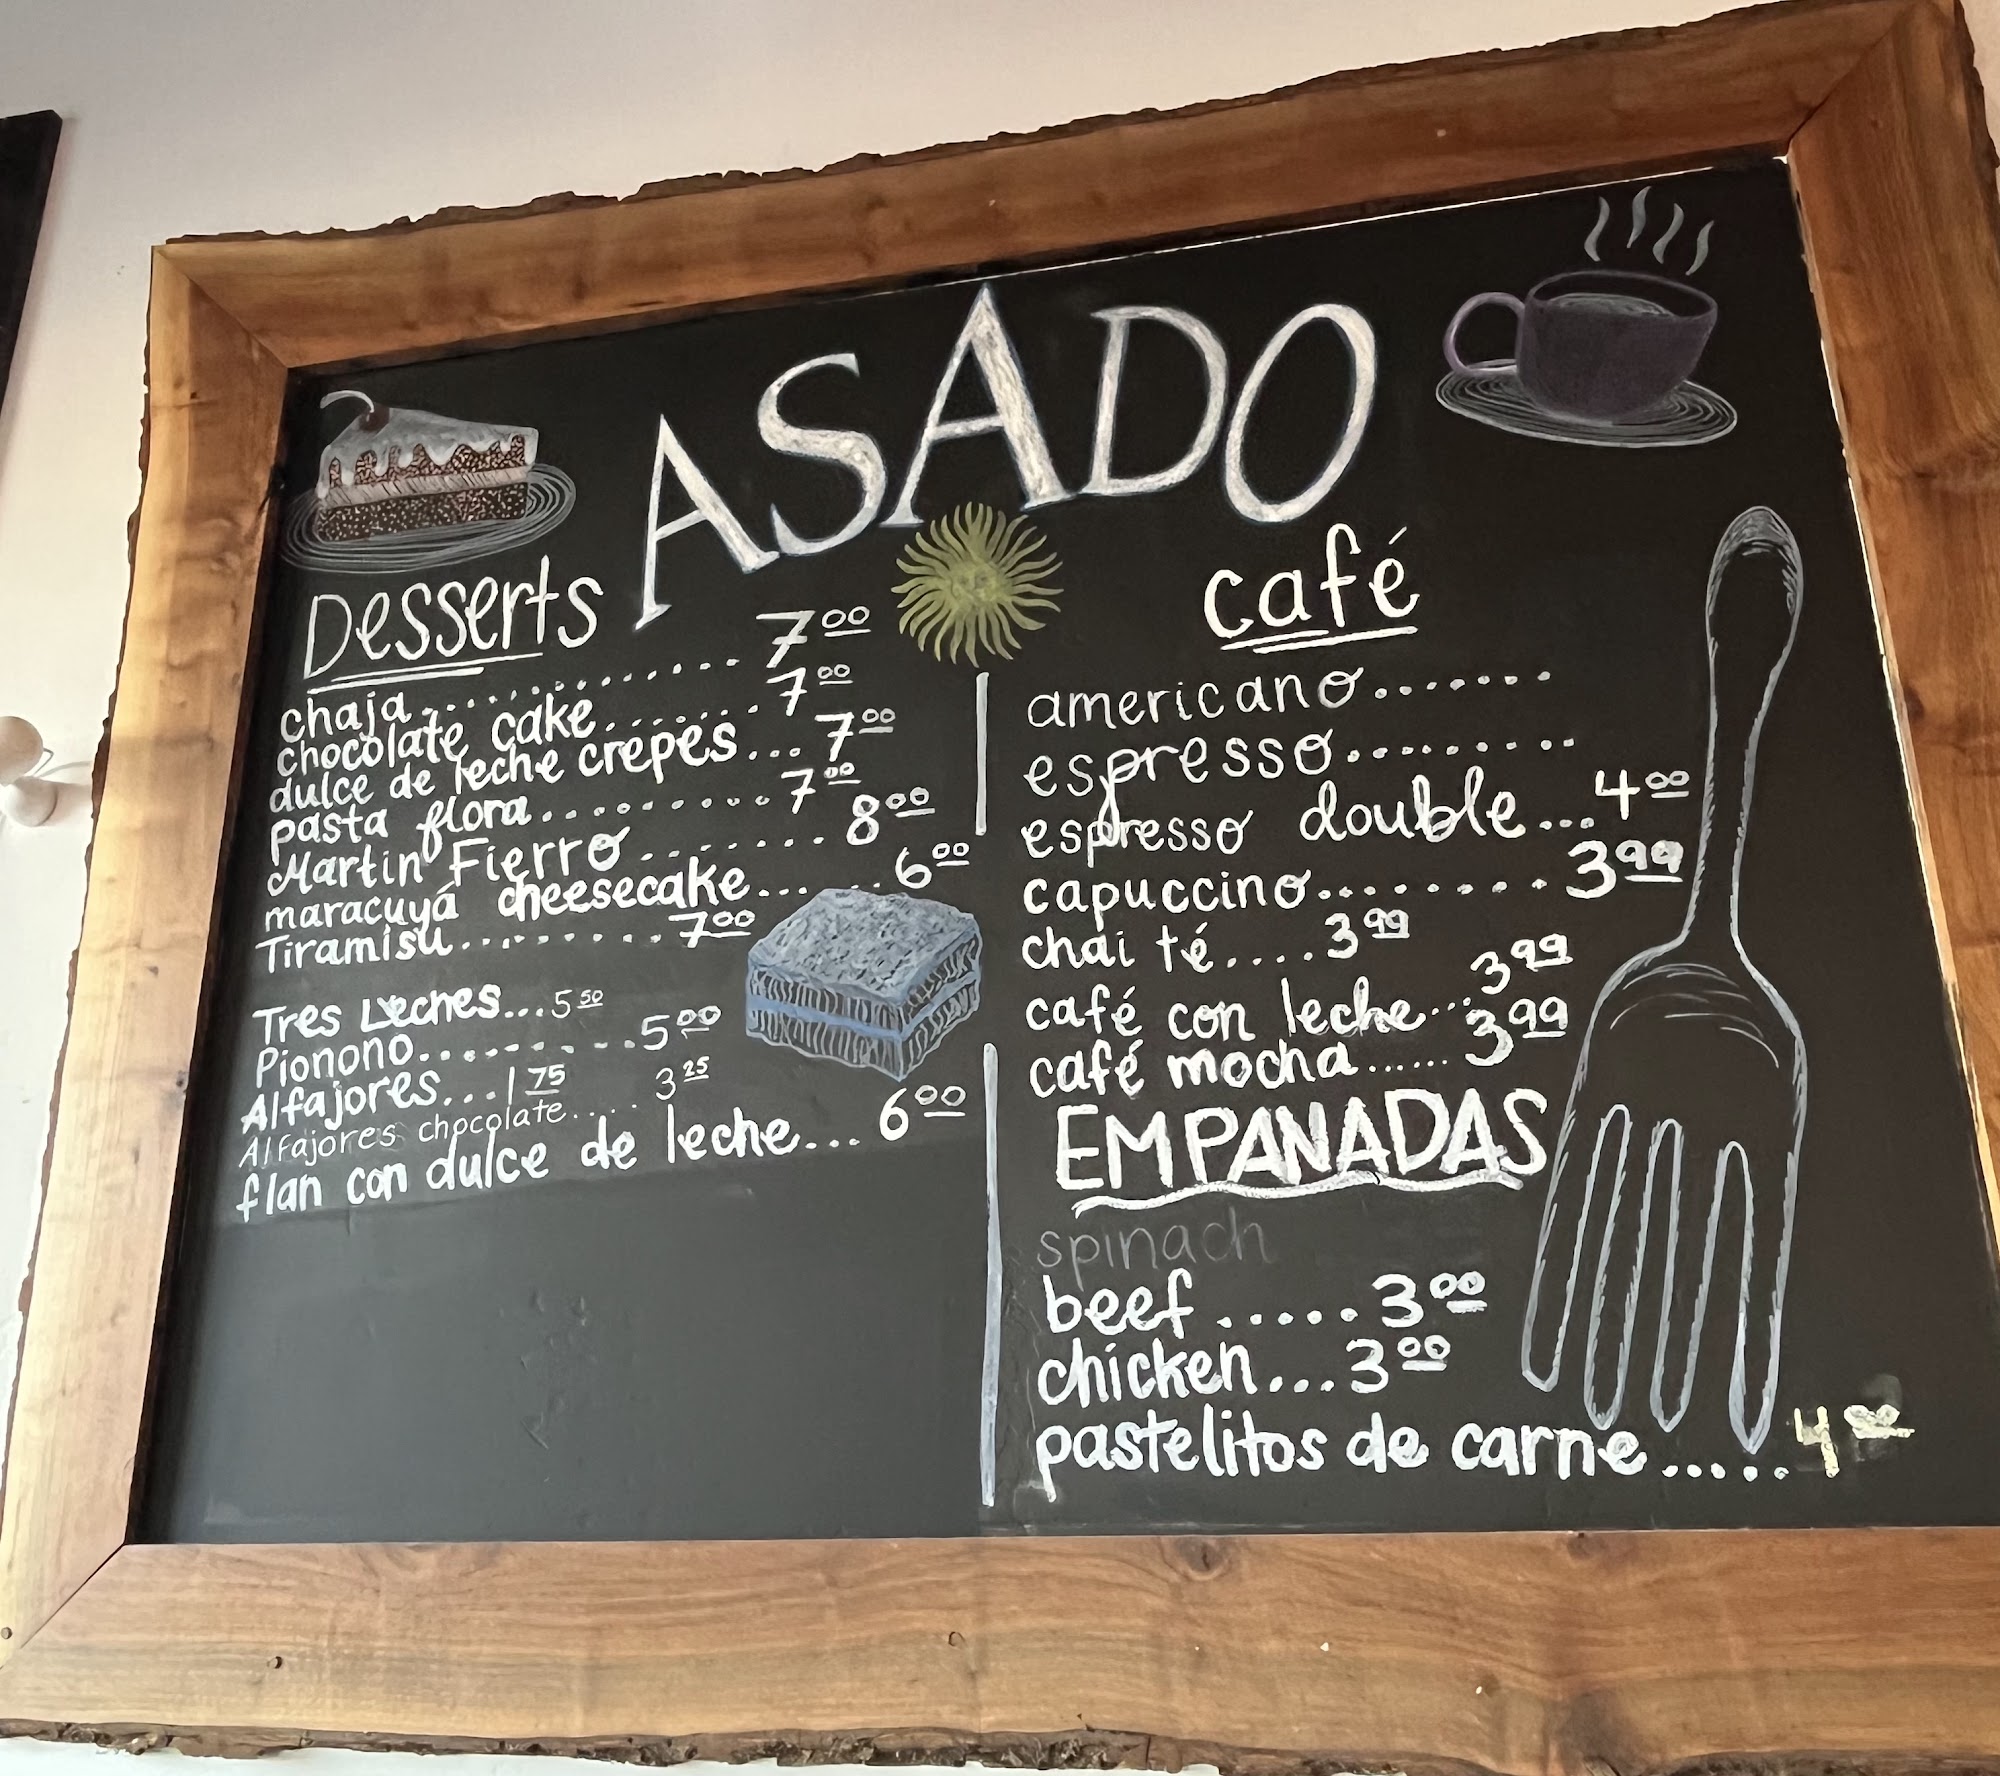 ASADO
Desserts
chaja............. 7 00
chocolate cake....... 7 00
dulce de leche crepes... 7 00
pasta flora.......... 7 00
Martin Fierro....... 8 00
maracuyá cheesecake...... 6 00
Tiramisu......... 7 00
Tres Leches...5 50
Pionono..........5 00
Alfajores...1 75
Alfajores chocolate.... 3 25
flan con dulce de leche... 6 00
café
americano.......
espresso.........
espresso double...4 00
capuccino........ 3 99
chai té....3 99
café con leche... 3 99
café mocha...... 3 99
EMPANADAS
spinach
beef.....3 00
chicken...3 00
pastelitos de carne..... 4 00